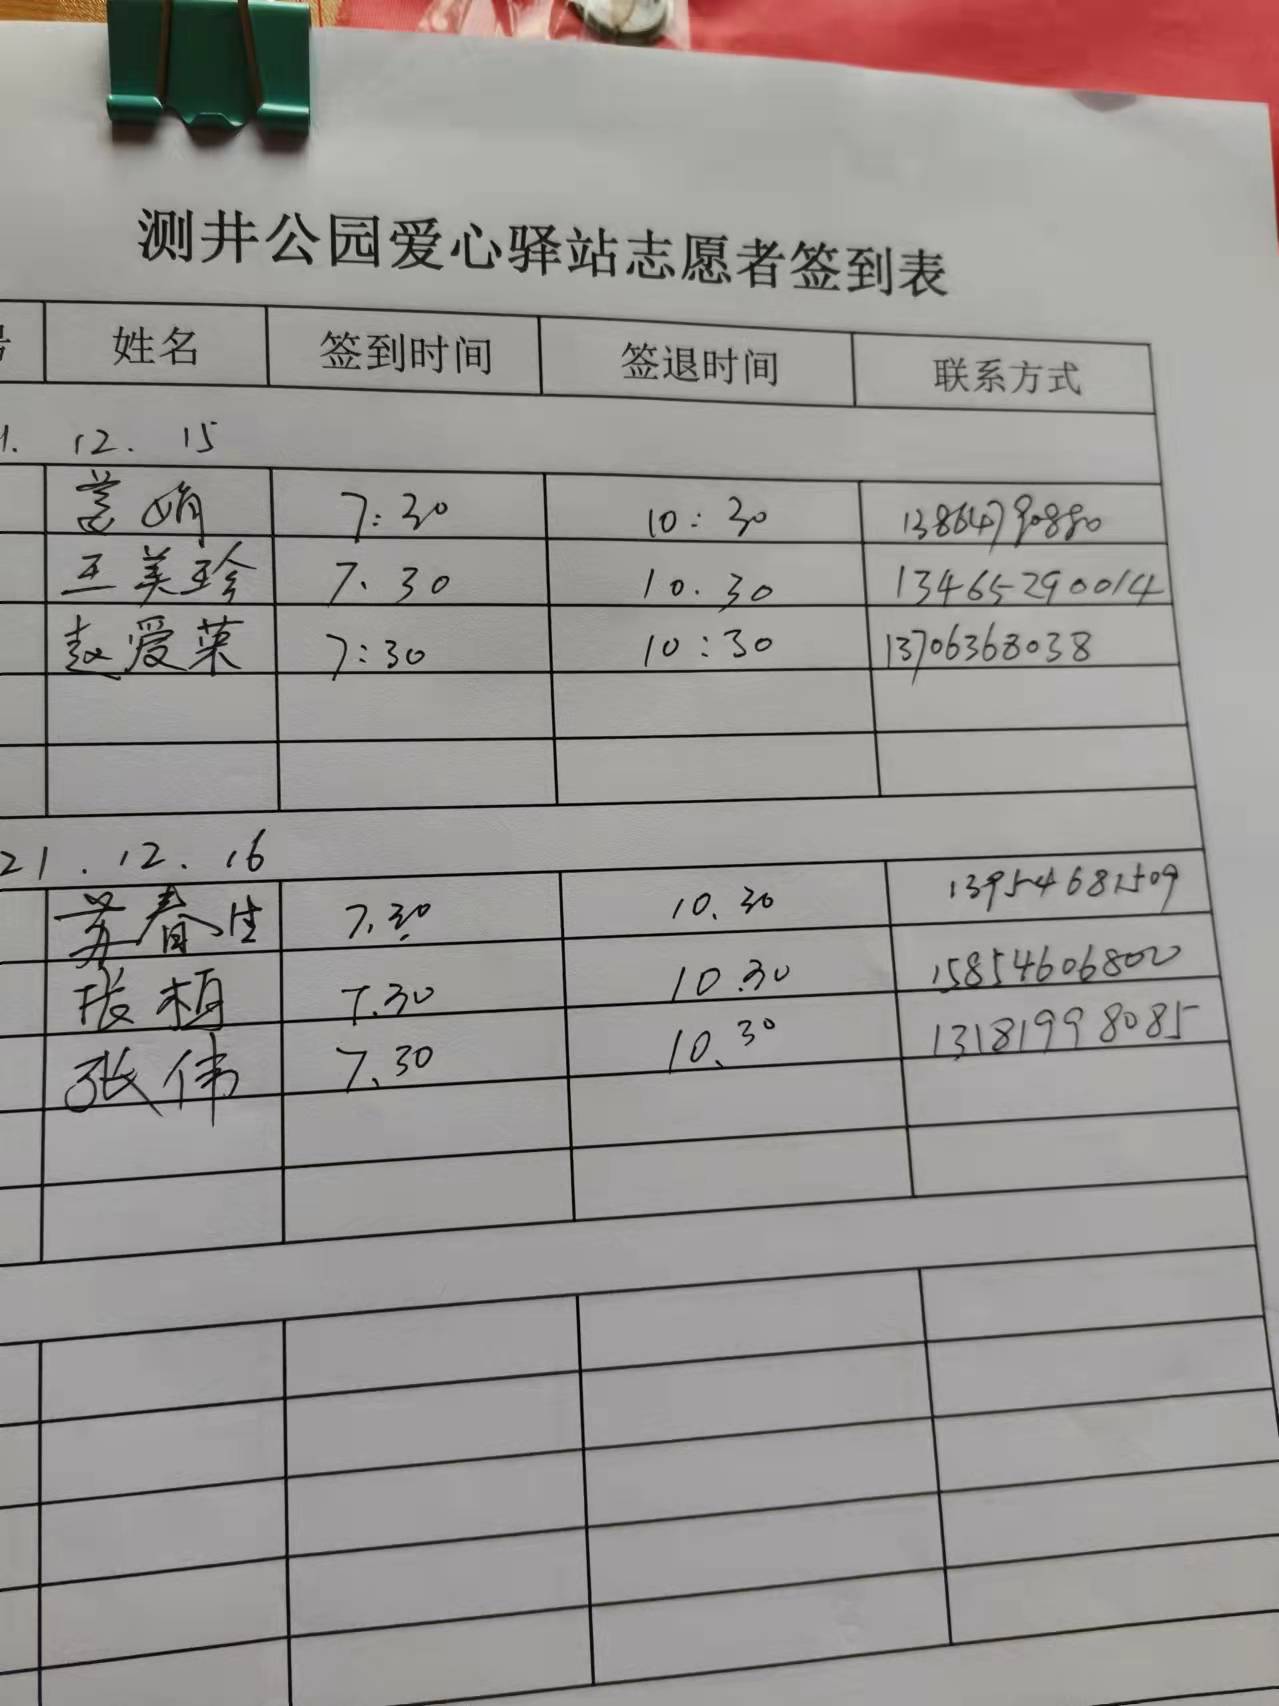 测井公园爱心驿站志愿者签到表
号 姓名 签到时间 签退时间 联系方式
1. 12. 15
娟 7:30 10:30 13864790880
王美珍 7.30 10.30 13465290014
赵爱莱 7:30 10:30 13706368038
21.12.16
苏春生 7.30 10.30 13954681509
张植 7.30 10.30 15854606800
张伟 7.30 10.30 13181998085